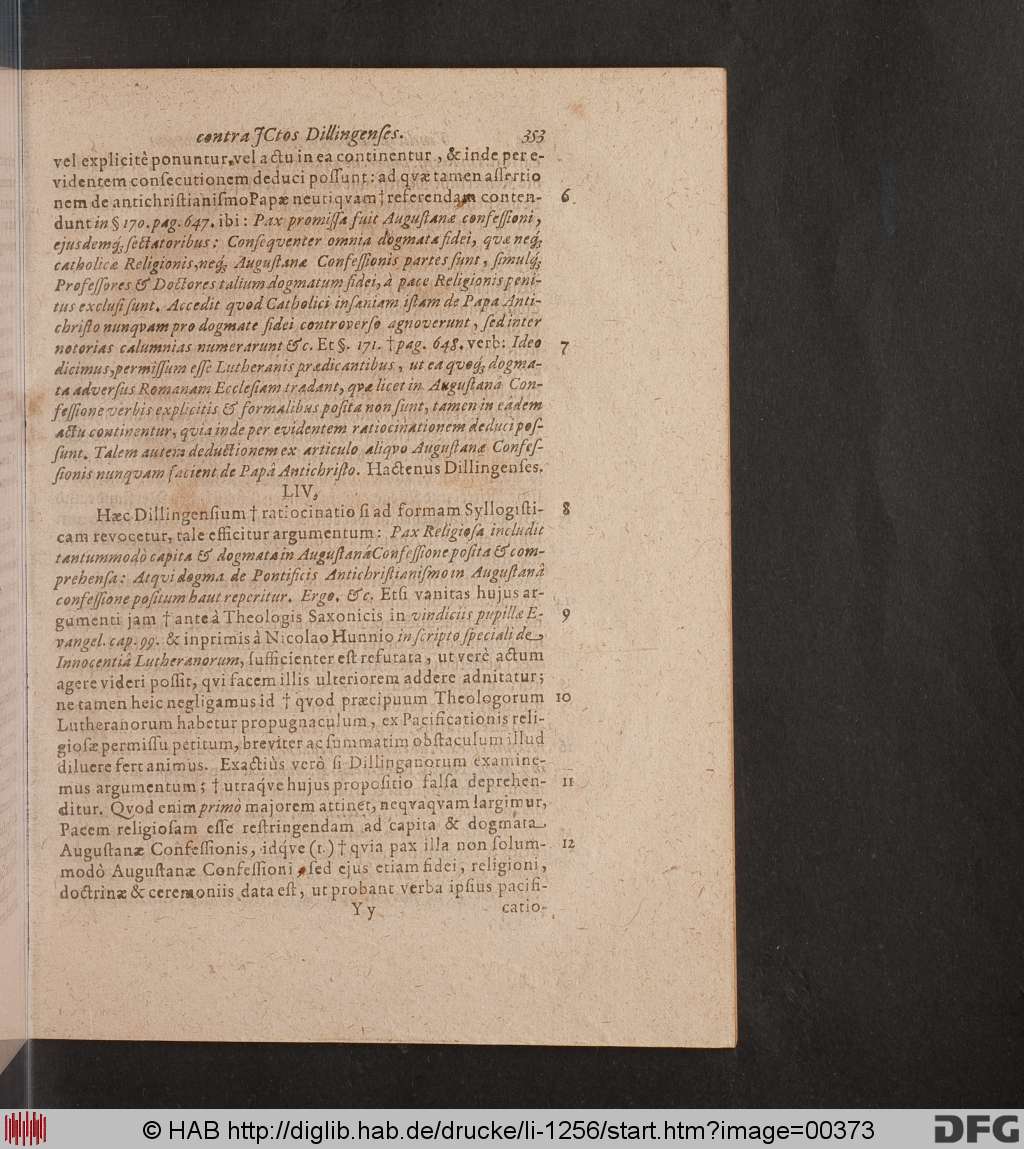 contra JCtos Dillingenſes. 353
vel explicitè ponuntur, vel actu in ea continentur, & inde per e-
videntem conſecutionem deduci poſſunt: ad qvæ tamen aſſertio
nem de antichriſtianiſmo Papæ neutiqvam † referendam conten- 6
dunt in § 170. pag. 647. ibi: Pax promiſſa fuit Auguſtanæ confeſſioni,
ejusdemq́; ſectatoribus: Conſeqventer omnia dogmata fidei, qvæ neq́;
catholicæ Religionis, neq́; Auguſtanæ Confeſſionis partes ſunt, ſimulq́;
Profeſſores & Doctores talium dogmatum fidei, à pace Religionis peni-
tus excluſi ſunt. Accedit qvod Catholici inſaniam iſtam de Papa Anti-
chriſto nunqvam pro dogmate fidei controverſo agnoverunt, ſed inter
notorias calumnias numerarunt &c. Et §. 171. † pag. 648. verb: Ideo 7
dicimus, permiſſum eſſe Lutheranis prædicantibus, ut ea qvoq́; dogma-
ta adverſus Romanam Eccleſiam tradant, qvæ licet in Auguſtanâ Con-
feſſione verbis explicitis & formalibus poſita non ſunt, tamen in eâdem
actu continentur, qvia inde per evidentem ratiocinationem deduci poſ-
ſunt. Talem autem deductionem ex articulo aliqvo Auguſtanæ Confeſ-
ſionis nunqvam facient de Papâ Antichriſto. Hactenus Dillingenſes.
LIV,
Hæc Dillingenſium † ratiocinatio ſi ad formam Syllogiſti- 8
cam revocetur, tale efficitur argumentum: Pax Religioſa includit
tantummodò capita & dogmata in Auguſtanâ Confeſſione poſita & com-
prehenſa: Atqvi dogma de Pontificis Antichriſtianiſmo in Auguſtanâ
confeſſione poſitum haut reperitur. Ergo, &c. Etſi vanitas hujus ar-
gumenti jam † ante à Theologis Saxonicis in vindiciis pupillæ E- 9
vangel. cap. 99. & inprimis à Nicolao Hunnio in ſcripto ſpeciali de
Innocentiâ Lutheranorum, ſufficienter eſt refutata, ut verè actum
agere videri poſſit, qvi facem illis ulteriorem addere adnitatur;
ne tamen heic negligamus id † qvod præcipuum Theologorum 10
Lutheranorum habetur propugnaculum, ex Pacificationis reli-
gioſæ permiſſu petitum, breviter ac ſummatim obſtaculum illud
diluere fert animus. Exactiùs verò ſi Dillinganorum examine-
mus argumentum; † utraqve hujus propoſitio falſa deprehen- 11
ditur. Qvod enim primò majorem attinet, neqvaqvam largimur,
Pacem religioſam eſſe reſtringendam ad capita & dogmata
Auguſtanæ Confeſſionis, idqve (1.) † qvia pax illa non ſolum- 12
modò Auguſtanæ Confeſſioni, ſed ejus etiam fidei, religioni,
doctrinæ & ceremoniis data eſt, ut probant verba ipſius pacifi-
Y y catio-
© HAB http://diglib.hab.de/drucke/li-1256/start.htm?image=00373 DFG